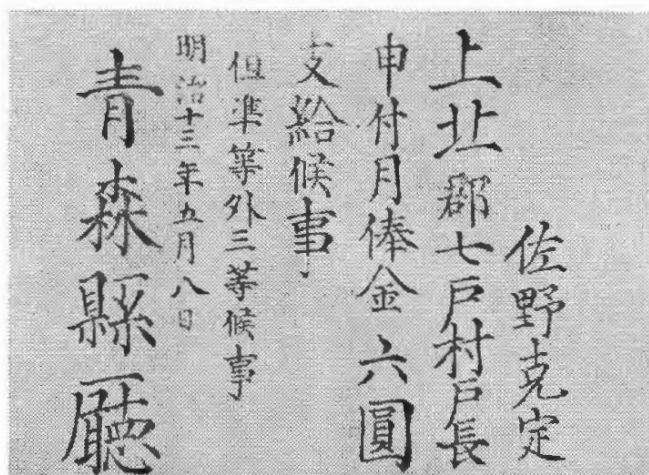 佐野克定
上北郡七戸村戸長
申付月俸金六圓
支給候事
但準等外三等候事
明治十三年五月八日
青森縣廳